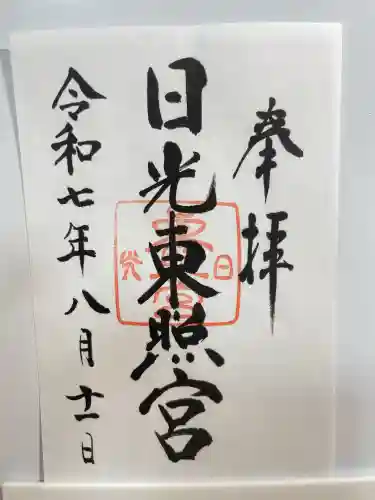 奉拝
日光東照宮
令和七年八月十一日